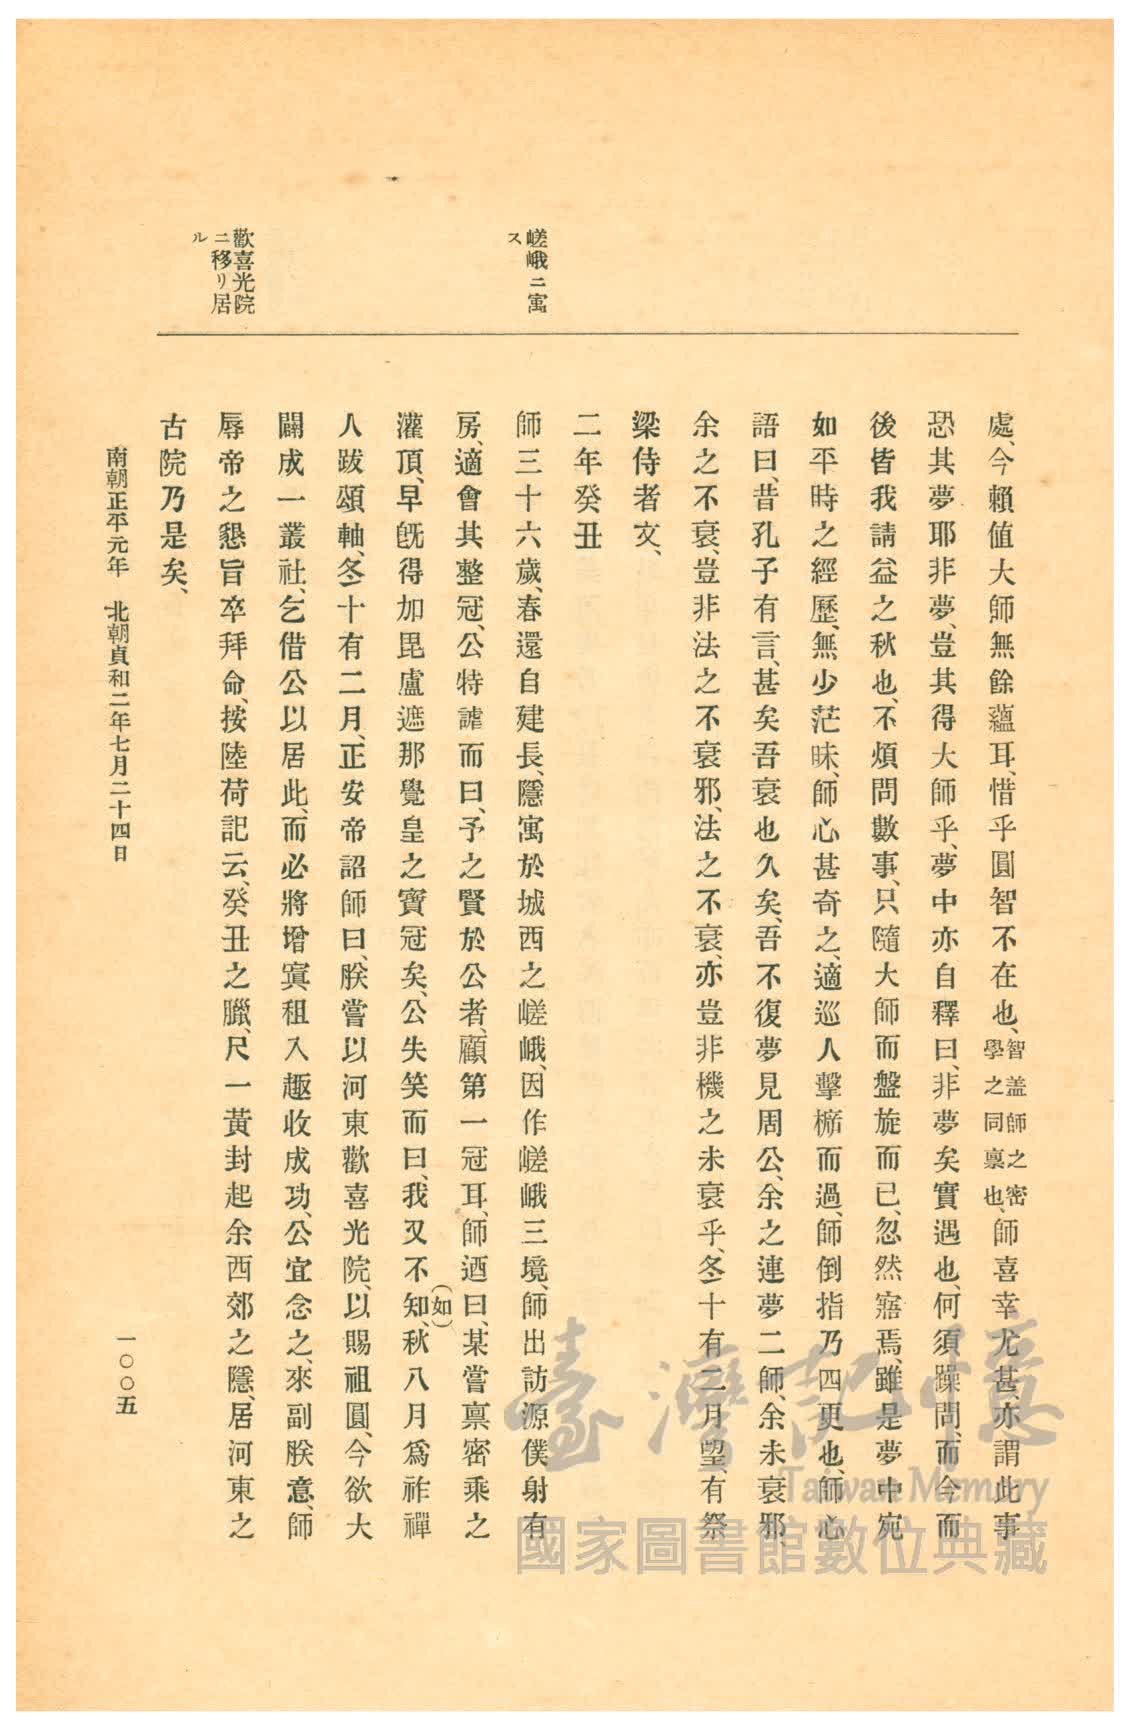 嵯峨ニ寓
ス
歡喜光院
ニ移リ居
ル
處、今賴値大師無餘蘊耳、惜乎圓智不在也、智盖師之密學之同禀也、師喜幸尤甚、亦謂此事
恐其夢耶非夢、豈其得大師乎、夢中亦自釋曰、非夢矣實遇也、何須躁問、而今而
後皆我請益之秋也、不煩問數事、只隨大師而盤旋而已、忽然寤焉、雖是夢中宛
如平時之經歷、無少茫昧、師心甚奇之、適巡人擊櫛而過、師倒指乃四更也、師心
語曰、昔孔子有言、甚矣吾衰也久矣、吾不復夢見周公、余之連夢二師、余未衰邪、
余之不衰、豈非法之不衰邪、法之不衰、亦豈非機之未衰乎、冬十有二月望、有祭
梁侍者文、
二年癸丑
師三十六歲、春還自建長、隱寓於城西之嵯峨、因作嵯峨三境、師出訪源僕射有
房、適會其整冠、公特謔而曰、予之賢於公者、顧第一冠耳、師迺曰、某嘗禀密乘之
灌頂、早旣得加毘盧遮那覺皇之寶冠矣、公失笑而曰、我又不知(如)、秋八月爲祚禪
人跋頌軸、冬十有二月、正安帝詔師曰、朕嘗以河東歡喜光院、以賜祖圓、今欲大
闢成一叢社、乞借公以居此、而必將增寘租入趣收成功、公宜念之、來副朕意、師
辱帝之懇旨卒拜命、按陸荷記云、癸丑之臘、尺一黃封起余西郊之隱、居河東之
古院乃是矣、
南朝正平元年 北朝貞和二年七月二十四日
一〇〇五
臺灣記憶
Taiwan Memory
國家圖書館數位典藏